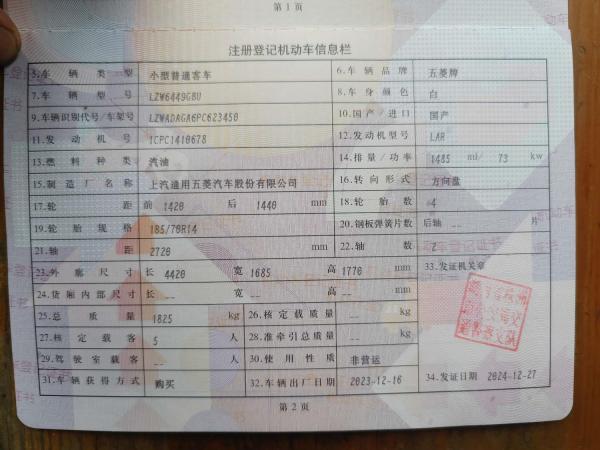 第 1 页
注册登记机动车信息栏
5.车辆类型 小型普通客车 6.车辆品牌 五菱牌
7.车辆型号 LZW6449GBU 8.车身颜色 白
9.车辆识别代号/车架号 LZWADAGA6PC623450 10.国产/进口 国产
11.发动机号 1CPC1410678 12.发动机型号 LAR
13.燃料种类 汽油 14.排量/功率 1485 ml/ 73 kw
15.制造厂名称 上汽通用五菱汽车股份有限公司 16.转向形式 方向盘
17.轮距 前 1420 后 1440 mm 18.轮胎数 4
19.轮胎规格 185/70R14 20.钢板弹簧片数 后轴 -- 片
21.轴距 2720 mm 22.轴数 2
23.外廓尺寸 长 4420 宽 1685 高 1770 mm 33.发证机关章
24.货厢内部尺寸 长 -- 宽 -- 高 -- mm
25.总质量 1825 kg 26.核定载质量 -- kg
27.核定载客 5 人 28.准牵引总质量 -- kg
29.驾驶室载客 -- 人 30.使用性质 非营运
31.车辆获得方式 购买 32.车辆出厂日期 2023-12-16 34.发证日期 2024-12-27
第 2 页